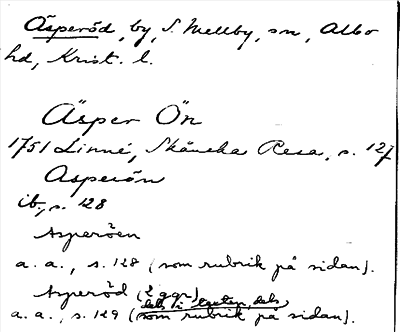 Äsperöd, by, S. Mellby, sn, Albo
hd, Krist. l.
Äsper Ön
1751 Linné, Skånska Resa, s. 127
Asperön
ib., s. 128
Asperöen
a. a., s. 128 (som rubrik på sidan).
Asperöd (2 ggr)
dels i texten, dels
a. a., s. 129 (som rubrik på sidan).